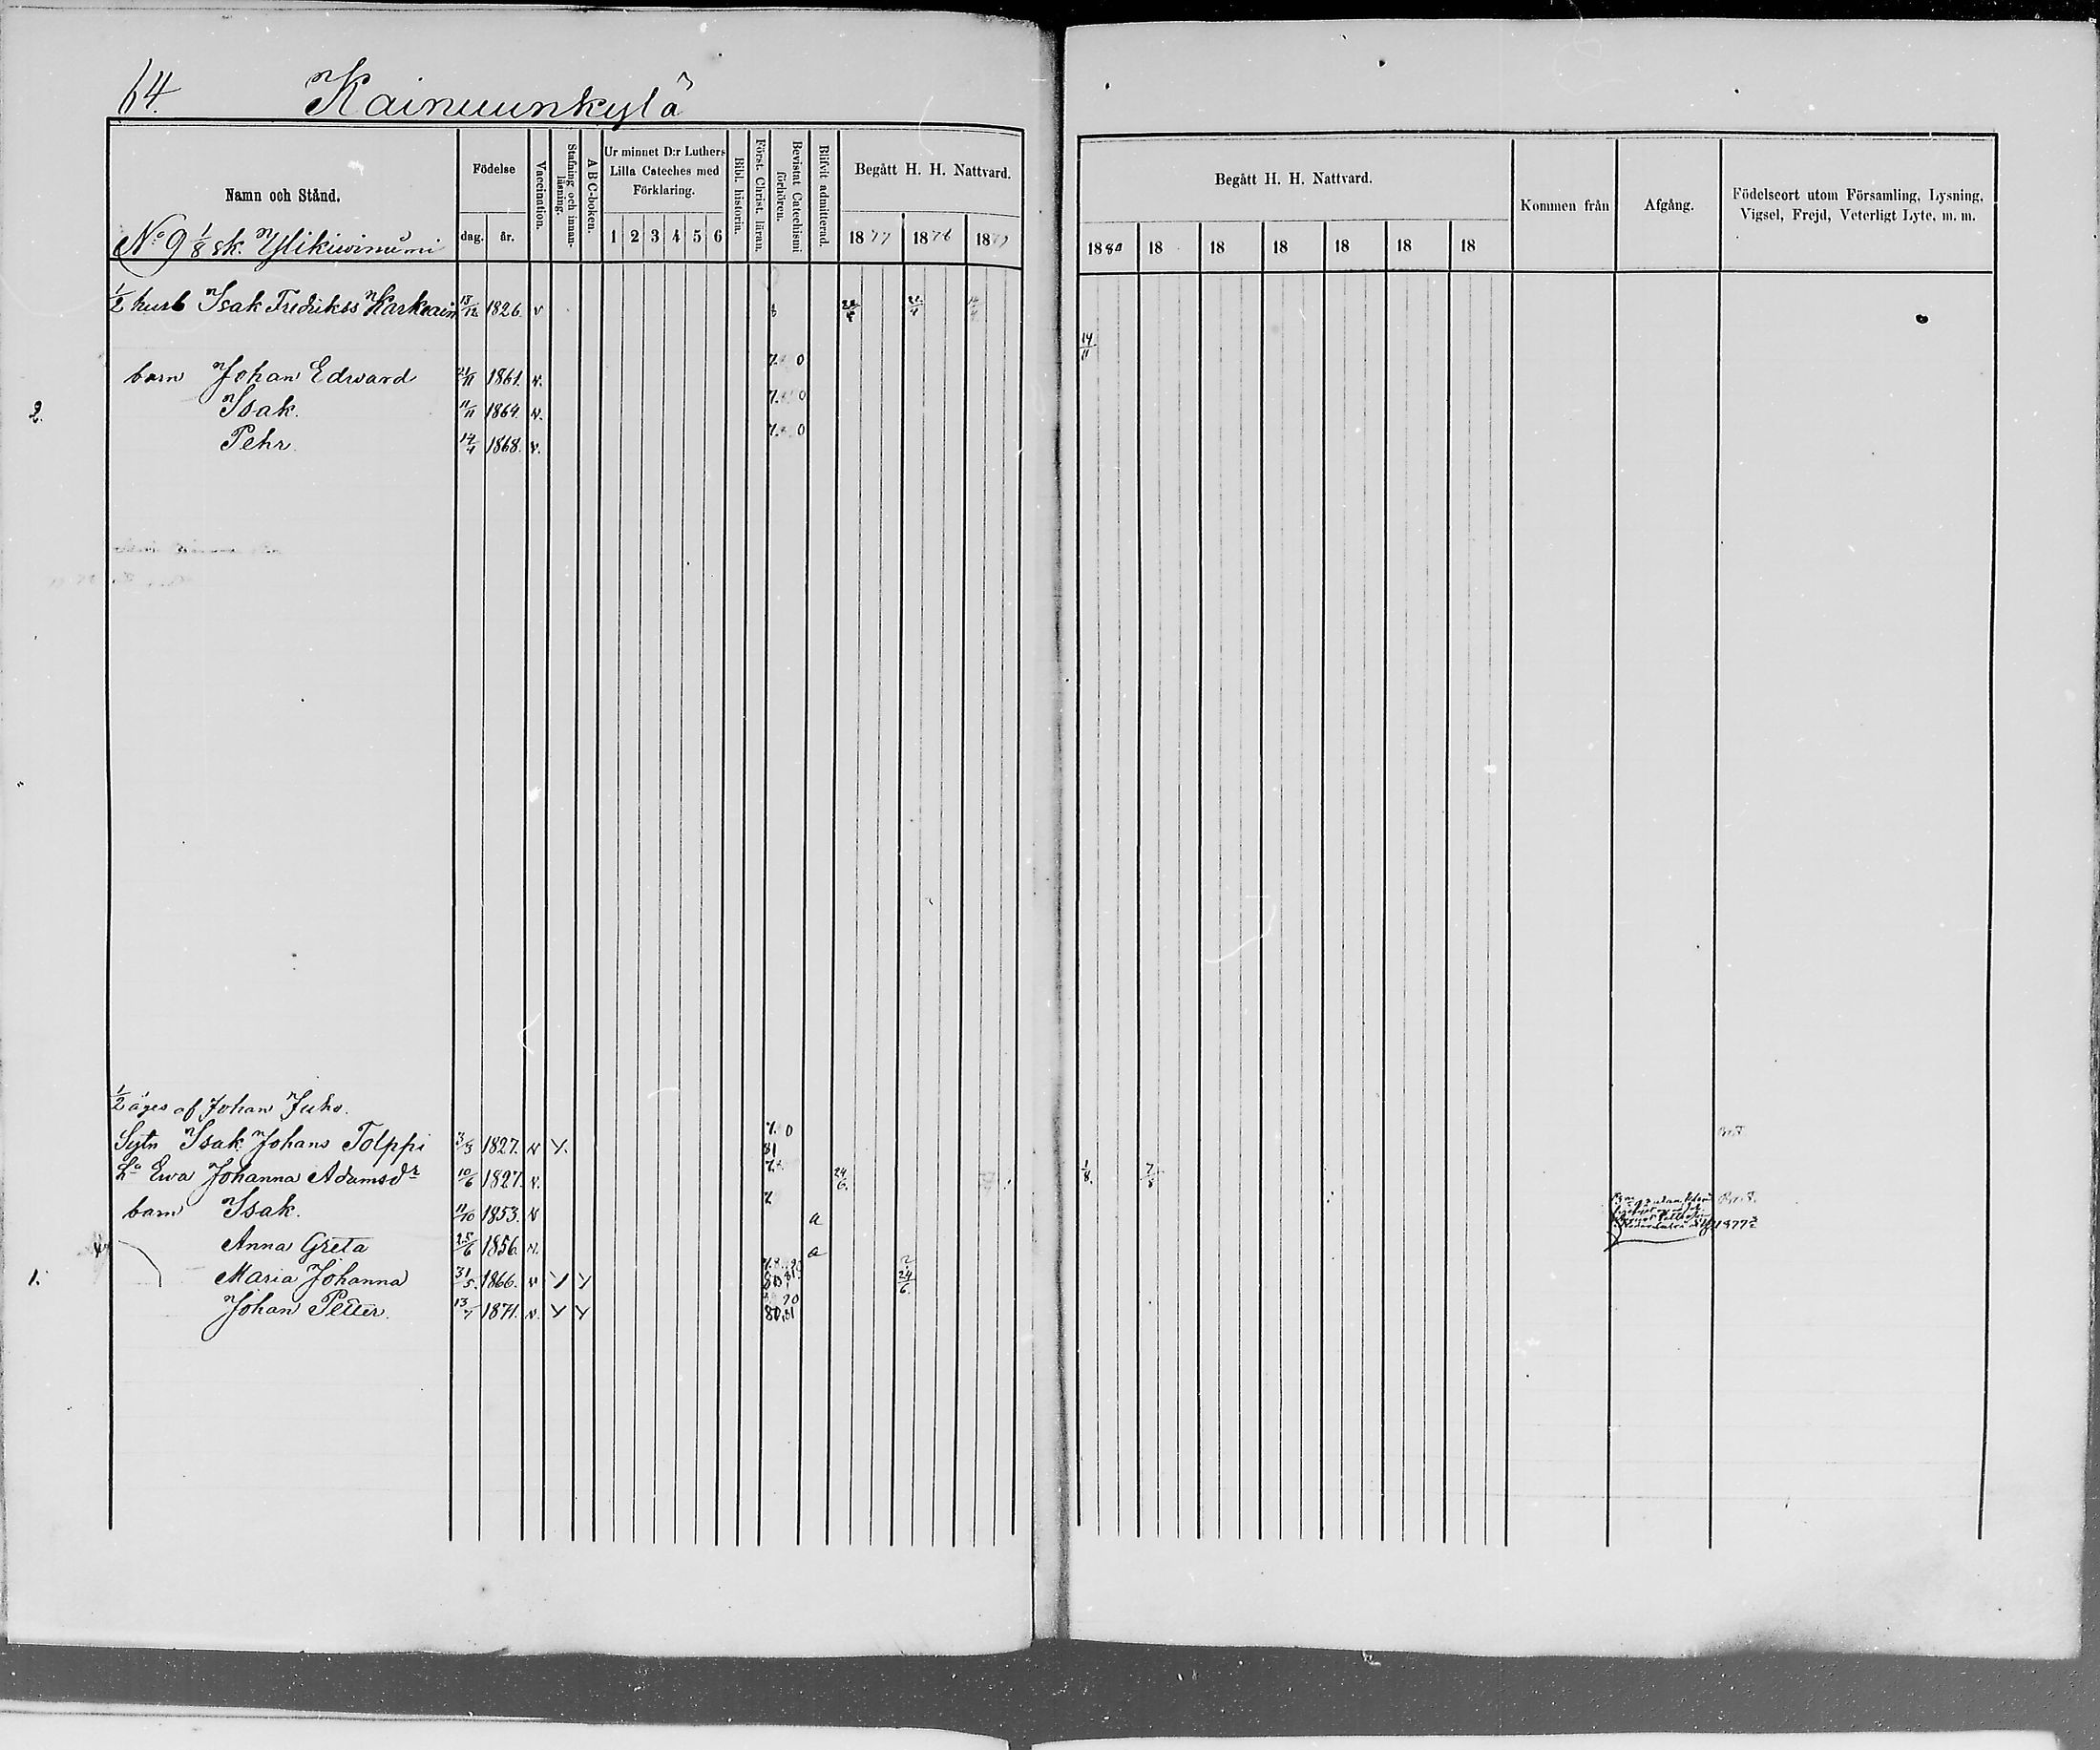 64.
Kainuunkylä
Namn och Stånd.
Födelse
dag.
år.
Vaccination.
Stafning och innan-läsning.
A B C-boken.
Ur minnet D:r Luthers
Lilla Cateches med
Förklaring.
1 2 3 4 5 6
Bibl. historia.
Först. Christ. läran.
Bevistat Catechismi förhören.
Blifvit admitterad.
Begått H. H. Nattvard.
1877 1878 1879
Begått H. H. Nattvard.
1880 18 18 18 18 18 18
Kommen från
Afgång.
Födelseort utom Församling, Lysning,
Vigsel, Frejd, Veterligt Lyte, m. m.
No 9 1/8 sk.
1/2 husb Isak Fredrikss 13/12 1826. v
14/11
barn Johan Edward 21/11 1861. v. 0
2. Isak. 11/11 1864. v. 0
Pehr. 14/4 1868. v. 0
1/2 äges af Johan Juho.
Sytn Isak Johans Tolppi 3/3 1827. v Y. 0 81
Ewa Johanna Adamsdr 10/6 1827. v. 24/6. 1/8. 7/8
barn Isak. 11/10 1853. v a 1877
Anna Greta 25/6 1856. v. a
1. Maria Johanna 31/5. 1866. v Y Y 24/6.
Johan Petter. 13/7 1871. v. Y Y 80,81